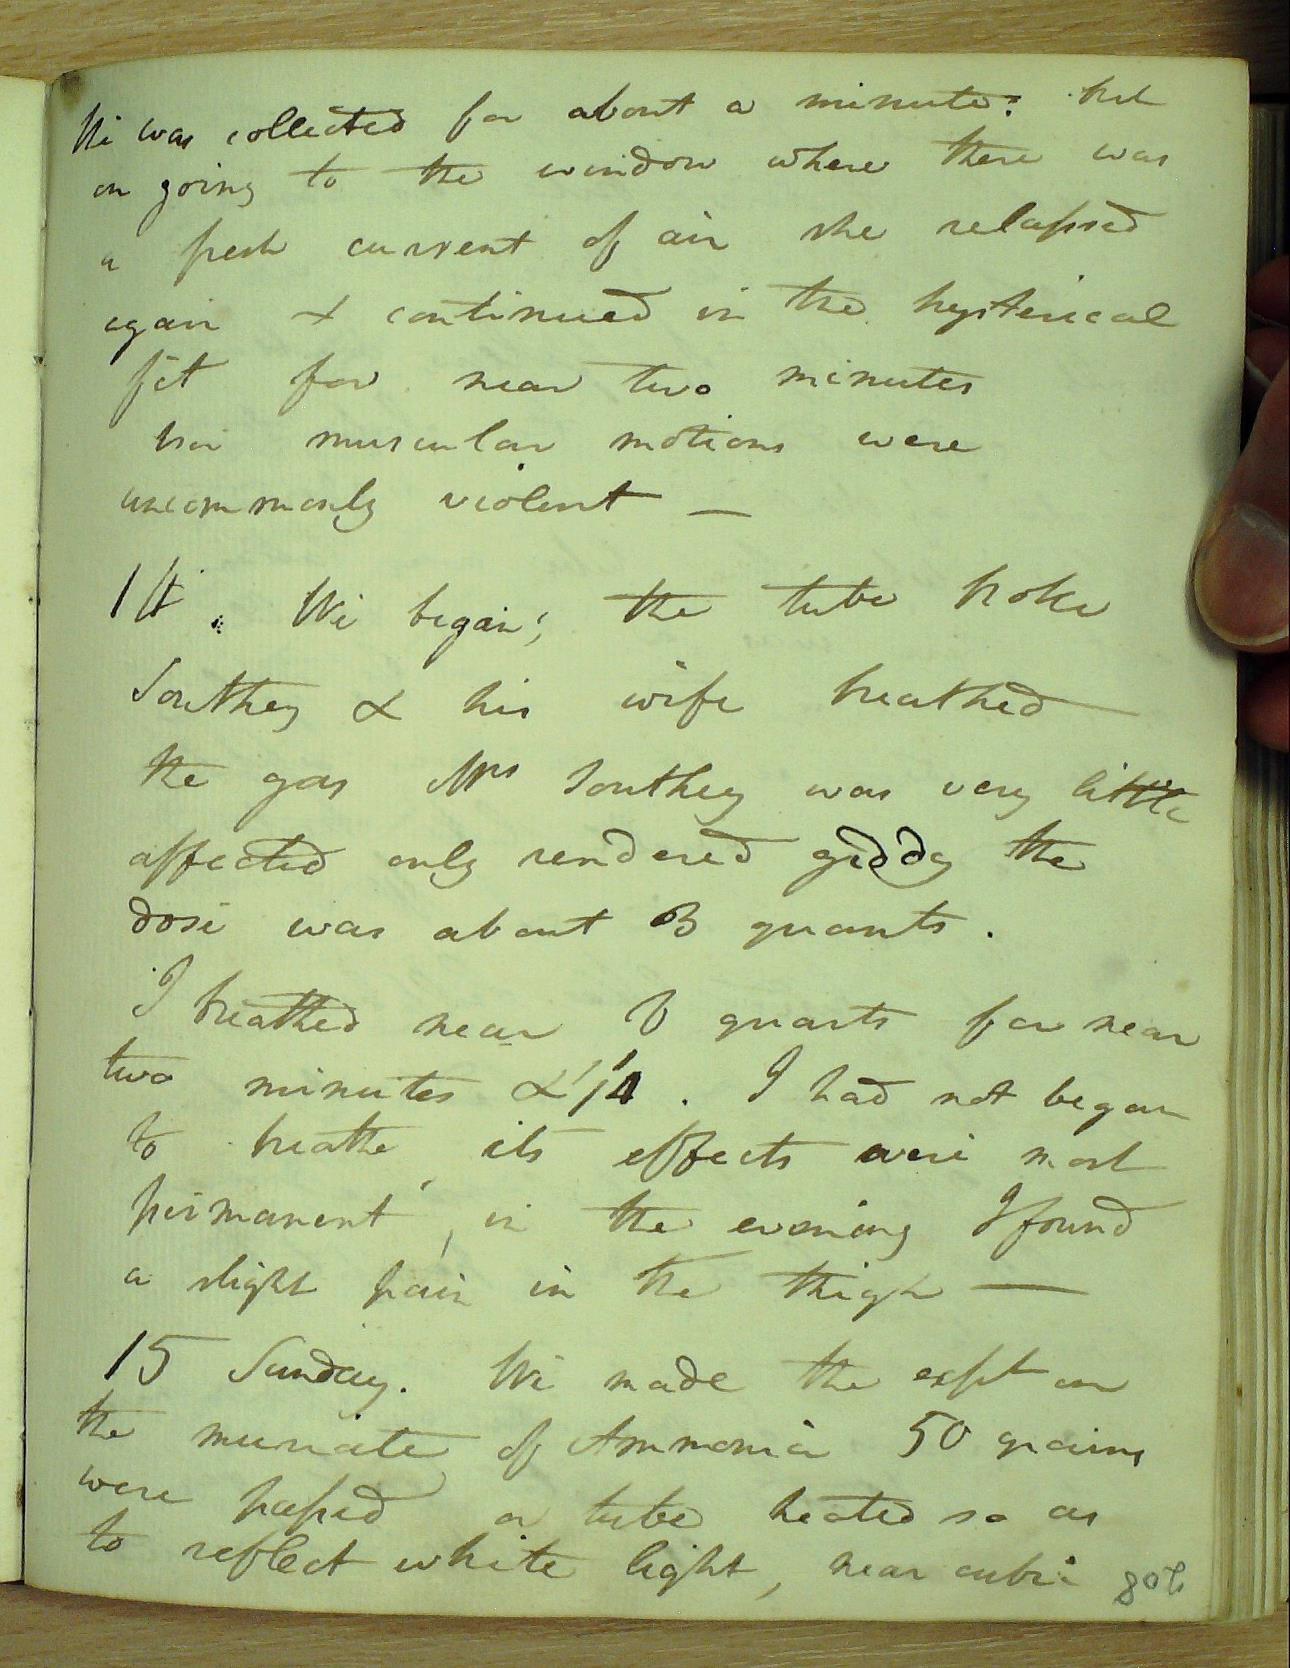 She was collected for about a minute: but
on going to the window where there was
a fresh current of air she relapsed
again & continued in the hysterical
fit for near two minutes
her muscular motions were
uncommonly violent —
14. We began; the tube broke
Southey & his wife breathed
the gas Mrs Southey was very little
affected only rendered giddy the
dose was about 3 quarts.
I breathed near 6 quarts for near
two minutes & 1/4. I had not began
to breathe, its effects were most
permanent, in the evening I found
a slight pain in the thigh —
15 Sunday. We made the expt on
the muriate of Ammonia 50 grains
were passed a tube heated so as
to reflect white light, near cubic